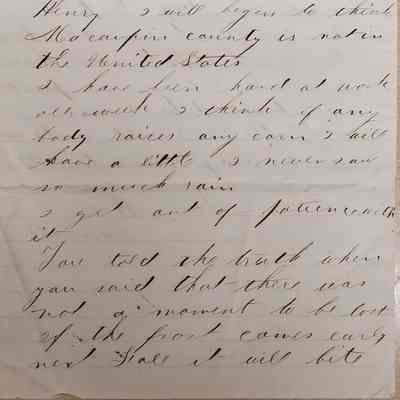 Henry I will begin to think
Macaupin county is not in
the United States
I have been hard at work
all week I think if any
body raices any corn I will
have a little I never saw
so much rain
I get out of patience with
it
You told the truth when
you said that there was
not a moment to be lost
if the frost comes early
next Fall it will bite